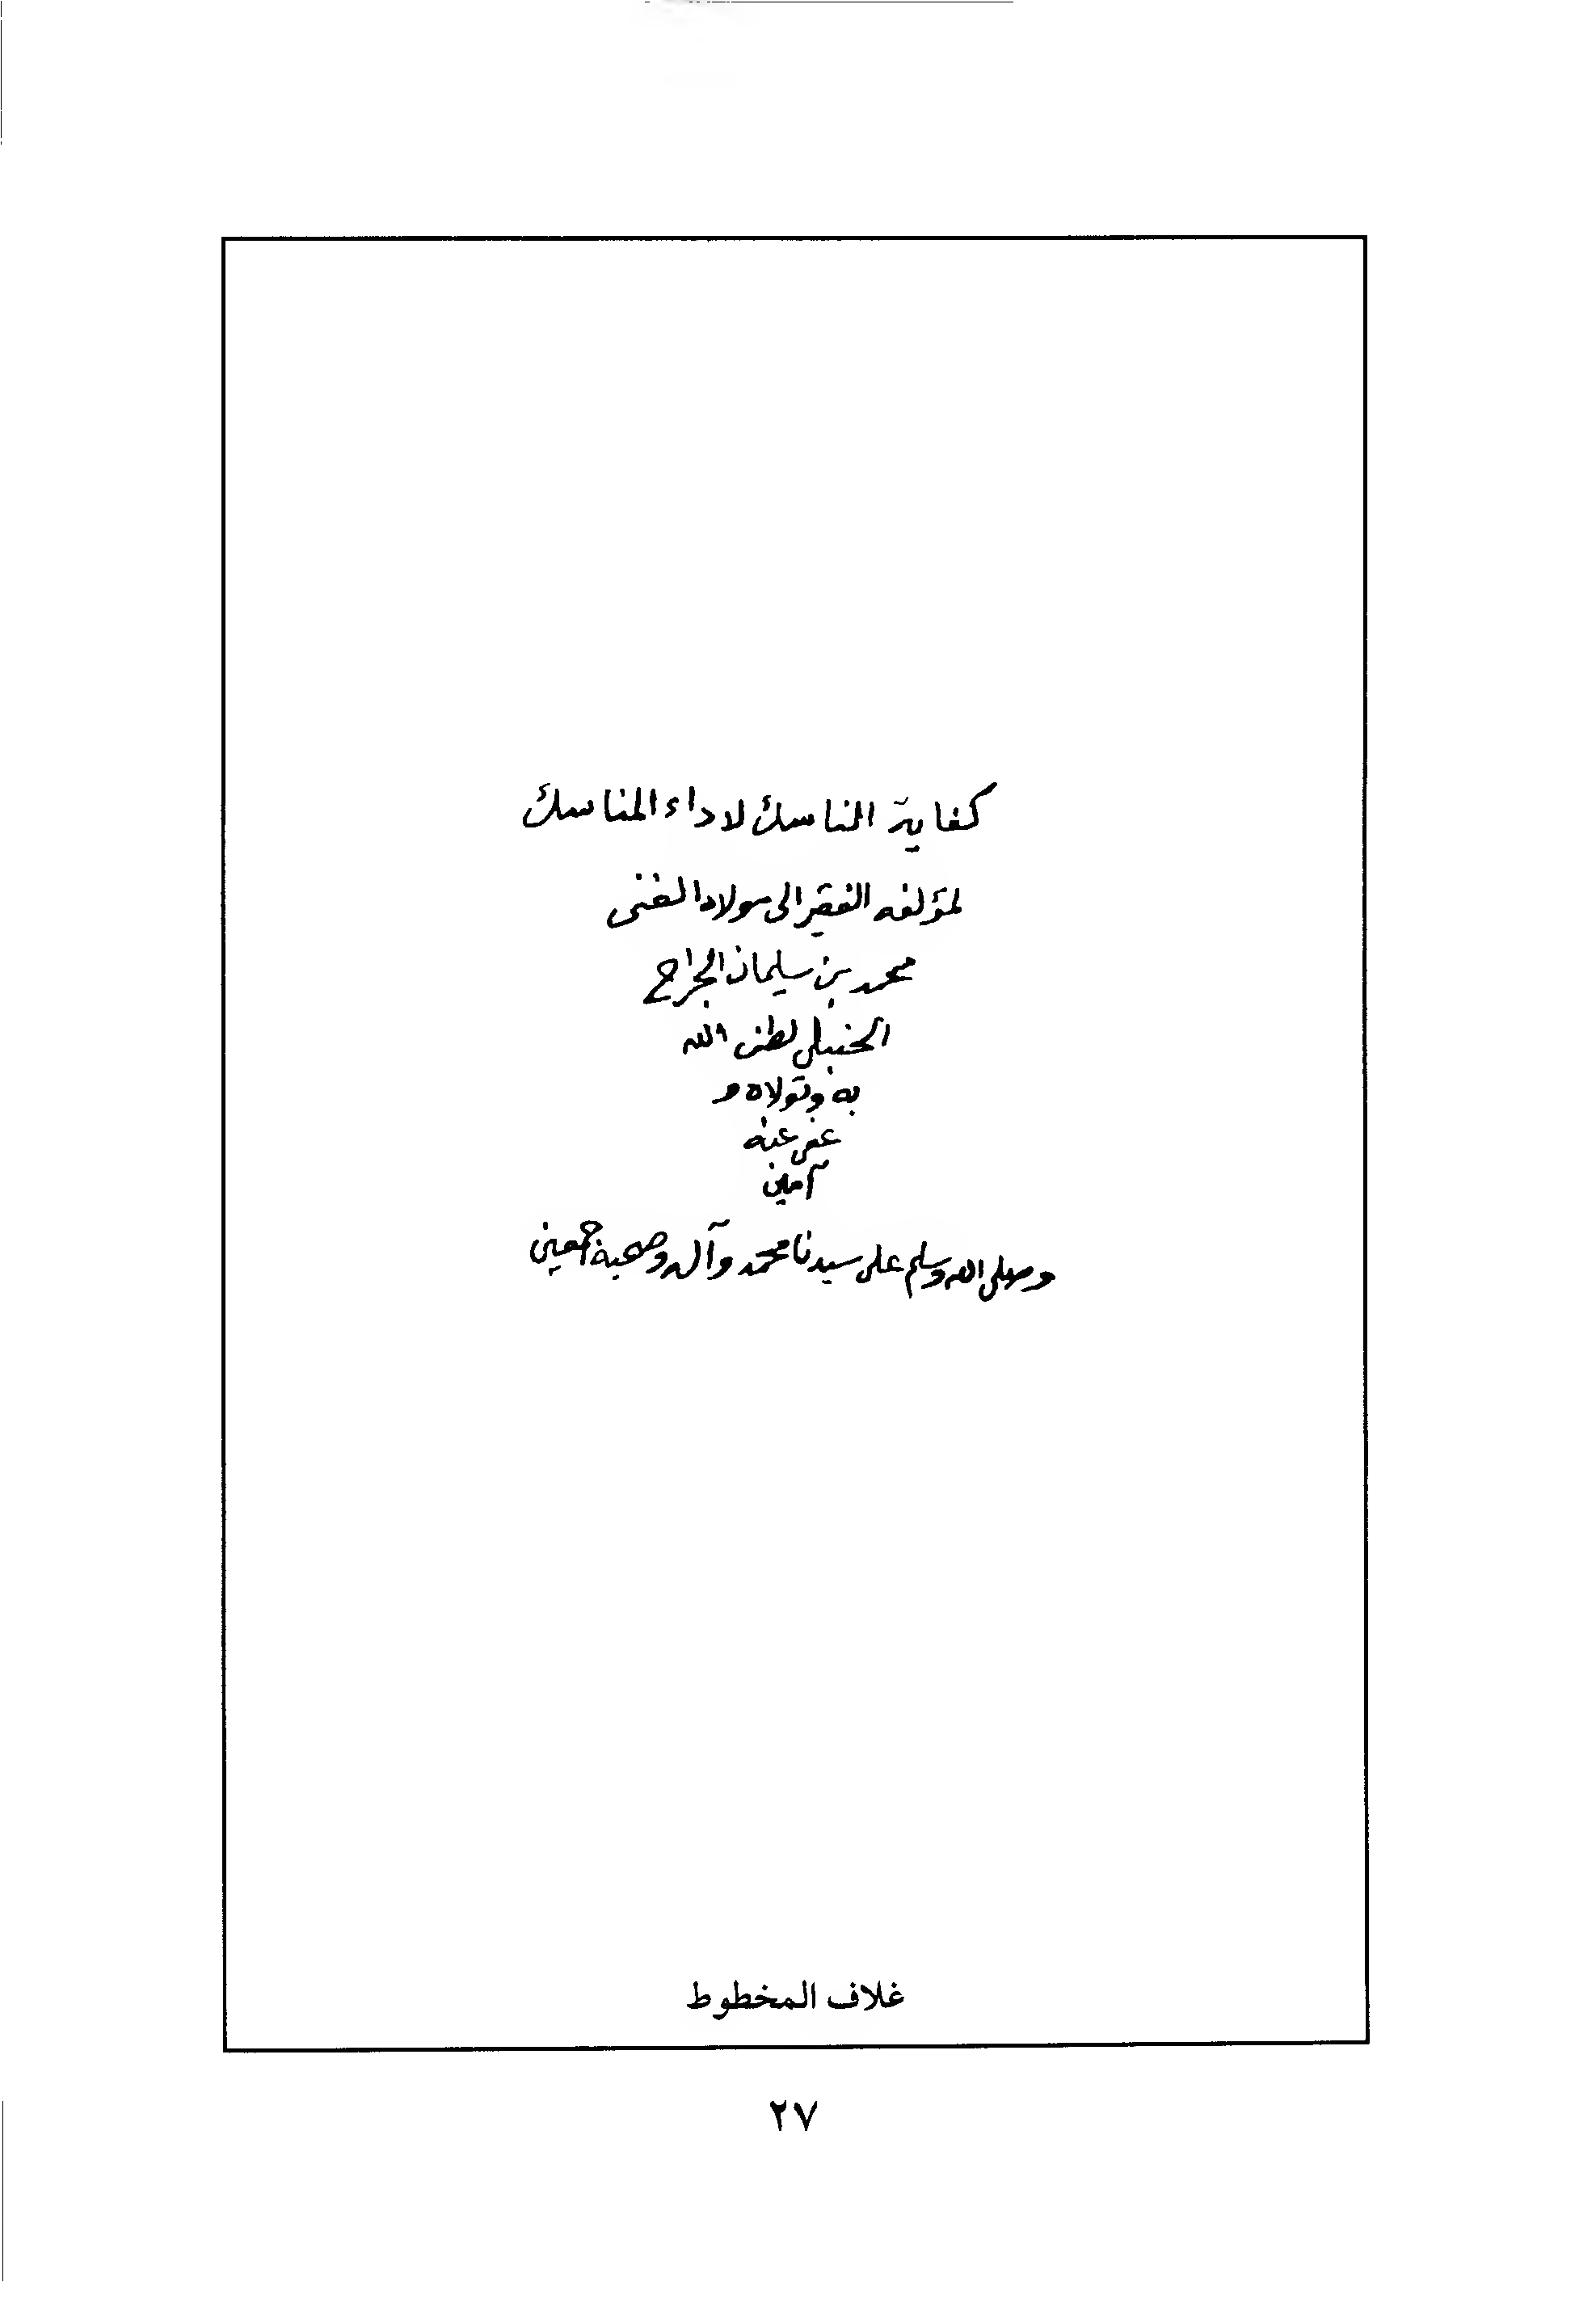 كفاية الناسك لاداء المناسك
لمؤلفه الفقير الى مولاه الغنى
محمد بن سليمان الجراح
الحنبلي لطف الله
به وتولاه و
عفى عنه
آمين
وصلى الله وسلم على سيدنا محمد وآله وصحبه اجمعين
غلاف المخطوط
٢٧